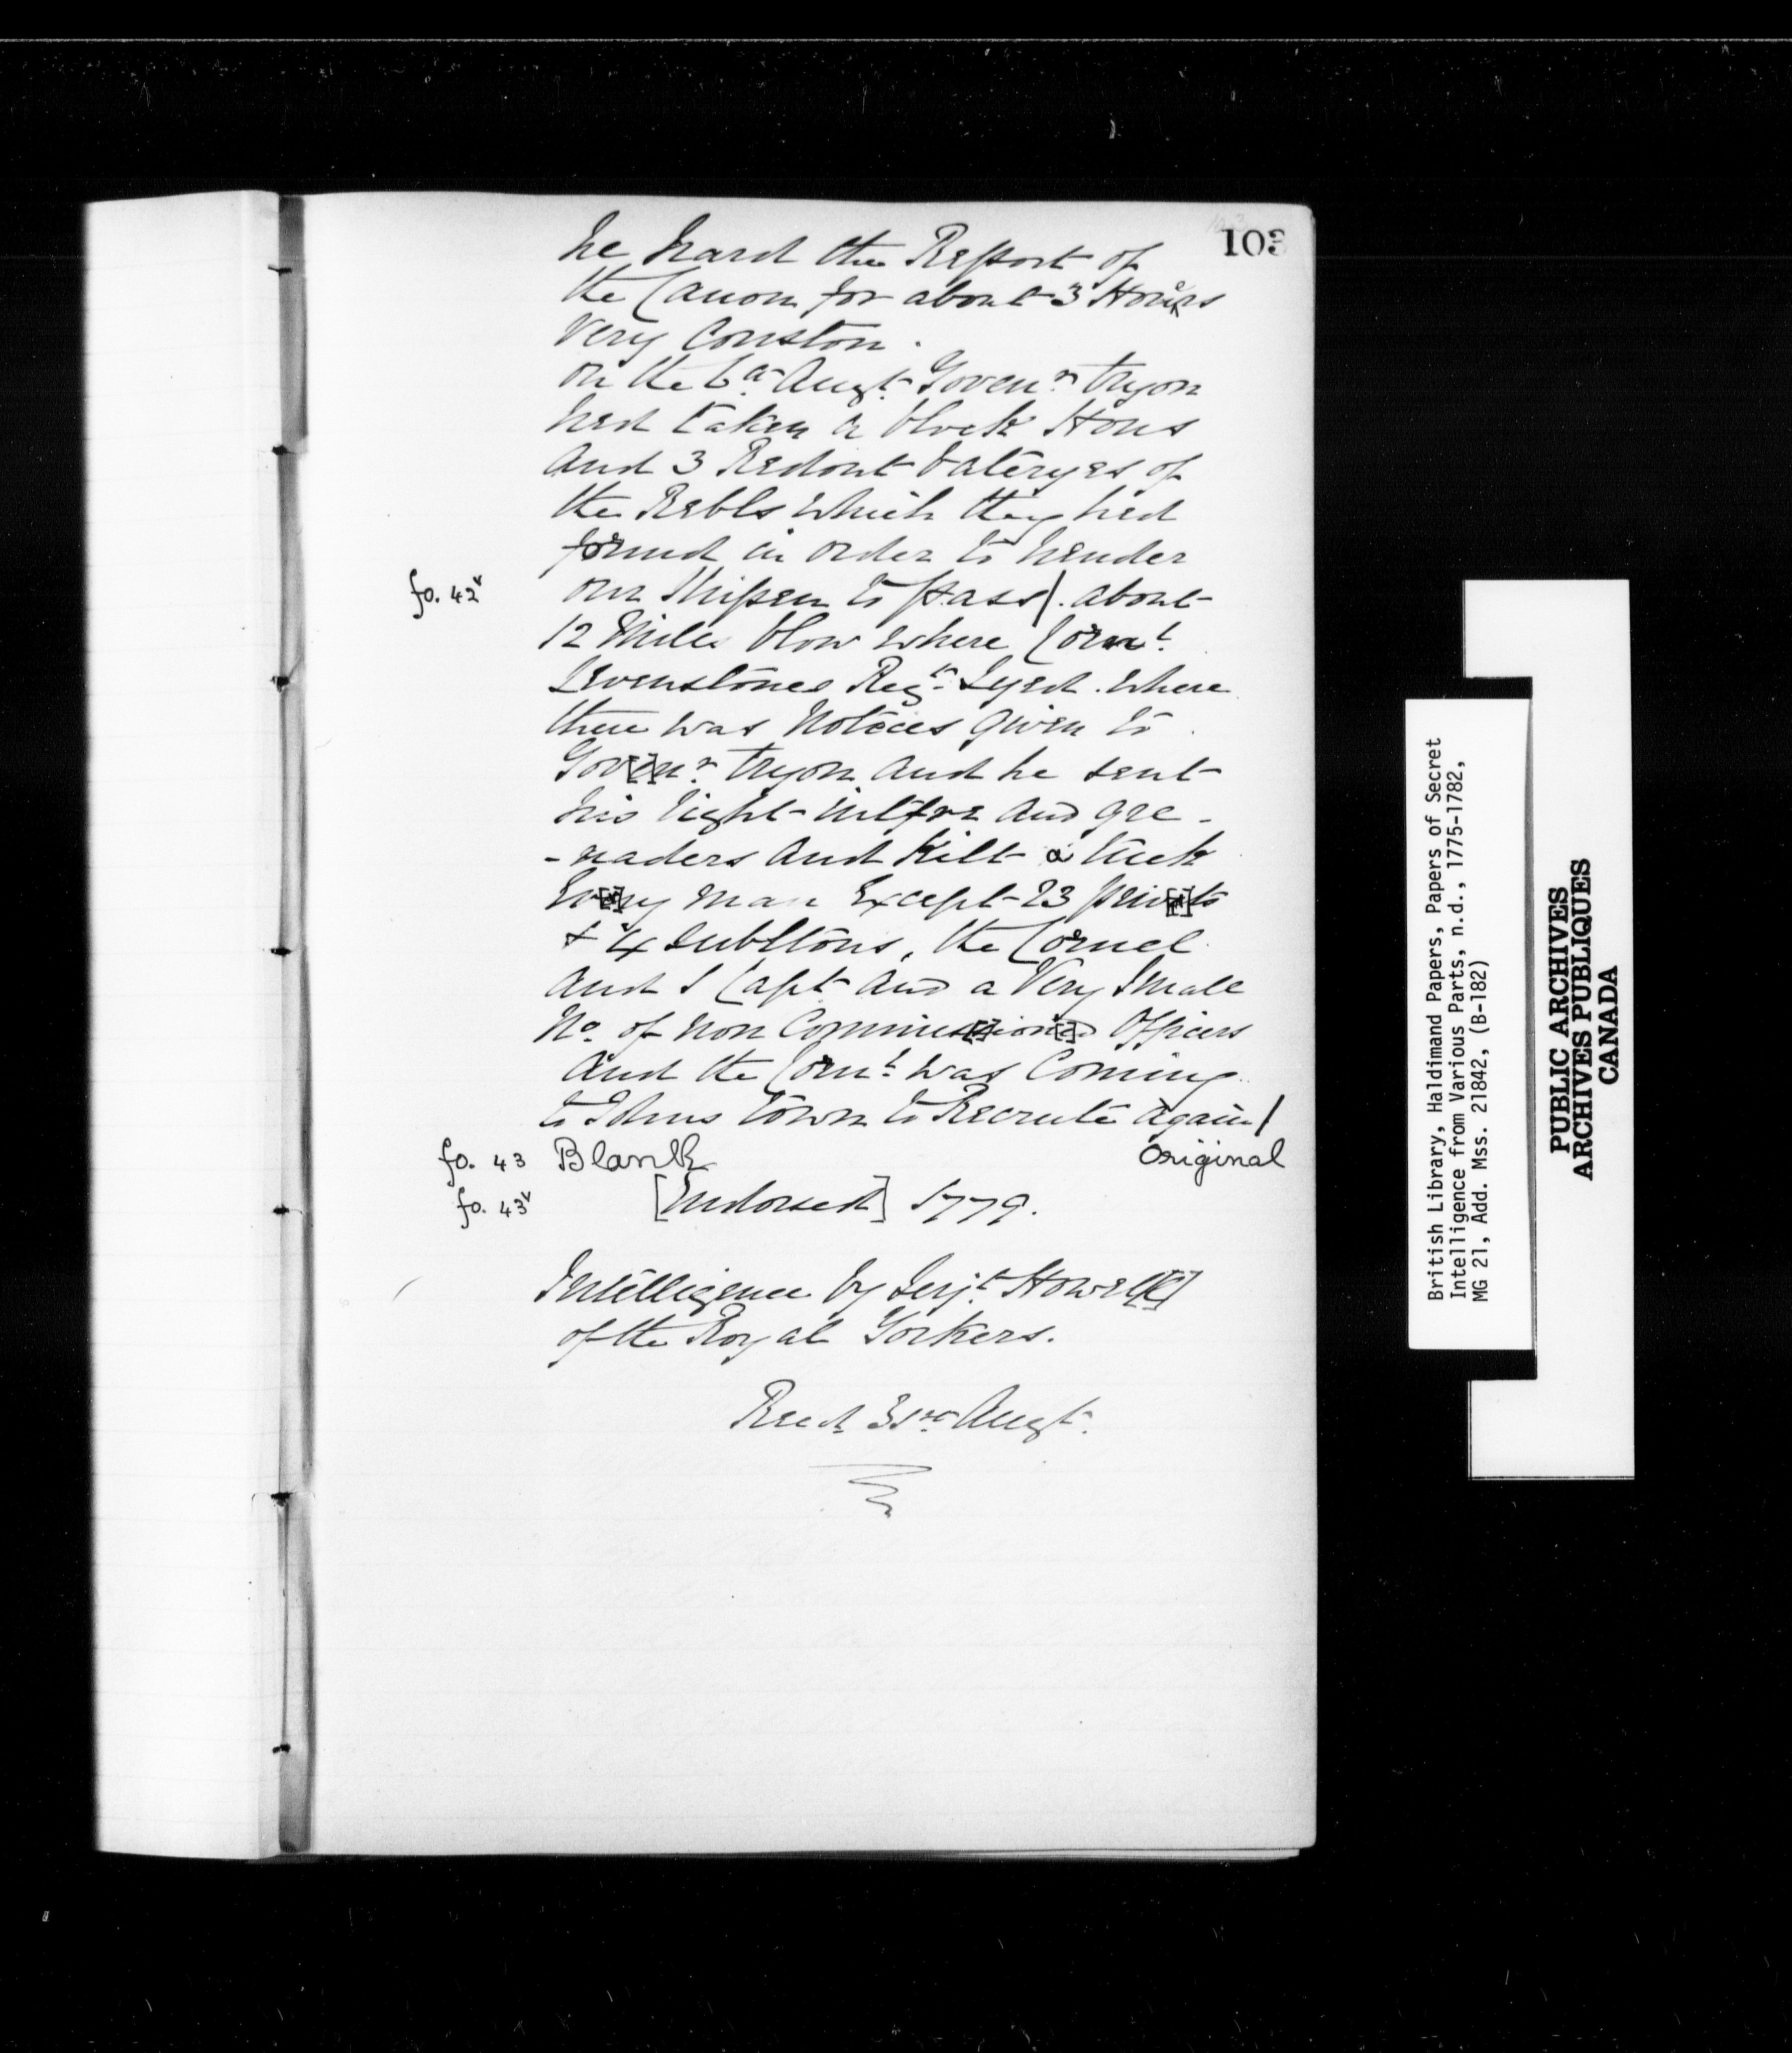 103
he hard the Report of
the Canon for about 3 Houers
Very Conston.
on the 6th Augt. Govenr. tryon
hed taken a block Hous
and 3 Redout bateryes of
the Rebls which they hed
formd in order to hender
fo. 42v
our Shipen to pass/. about
12 Mile blow where Cornl.
Levenstones Regt. Lyed. where
there was Notices given to
Govenr. tryon and he sent
his light inftre and gre-
-naders and Kilt & tuck
Every man Except 23 privets
& 4 Subltons, the Cornel
and 1 Capt and a Very Smale
No. of non Commissioned Officers
and the Cornl. was Coming
to Johns town to Recrute again/
fo. 43 Blank
original
fo. 43v [Endorsed] 1779.
Intelligence by Serjt. Howell
of the Royal Yorkers.
Recd. 31st Augt.
British Library, Haldimand Papers, Papers of Secret
Intelligence from Various Parts, n.d., 1775-1782,
MG 21, Add. Mss. 21842, (B-182)
PUBLIC ARCHIVES
ARCHIVES PUBLIQUES
CANADA